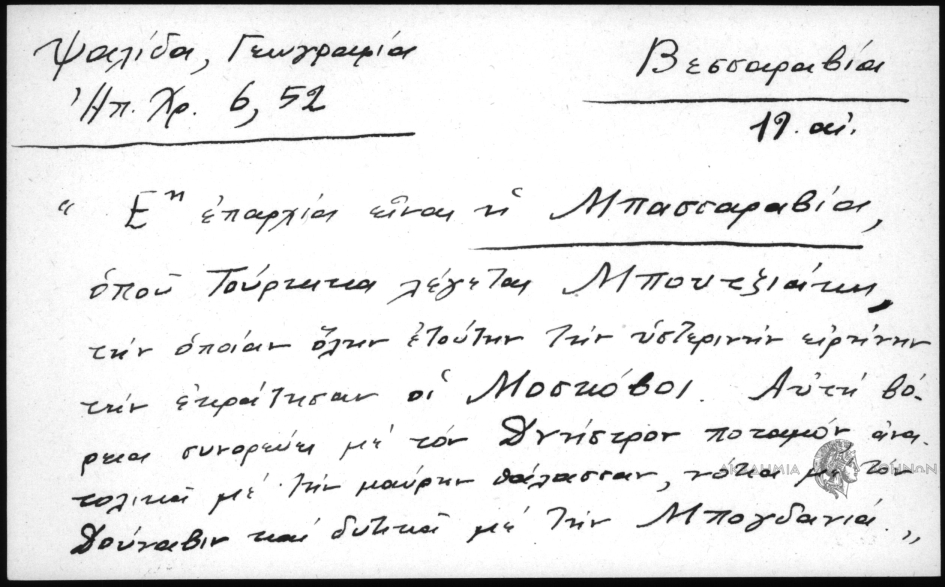 Ψαλίδα, Γεωγραφία
Ἠπ. Χρ. 6, 52
Βεσσαραβία
19. αἰ.
“ Εη ἐπαρχία εἶναι ἡ Μπασσαραβία,
ὁποῦ Τούρκικα λέγεται Μπουτζιάκι,
τὴν ὁποίαν ὅλην ἐτούτην τὴν ὑστερινὴν εἰρήνην
τὴν ἐκράτησαν οἱ Μοσκόβοι. Αὐτὴ βό-
ρεια συνορεύει μὲ τὸν Δνήστρον ποταμόν ἀνα-
τολικὰ μὲ τὴν μαύρην θάλασσαν, νότια μὲ τὸν
Δούναβιν καὶ δυτικὰ μὲ τὴν Μπογδανιά. „
ΑΚΑΔΗΜΙΑ ΑΘΗΝΩΝ